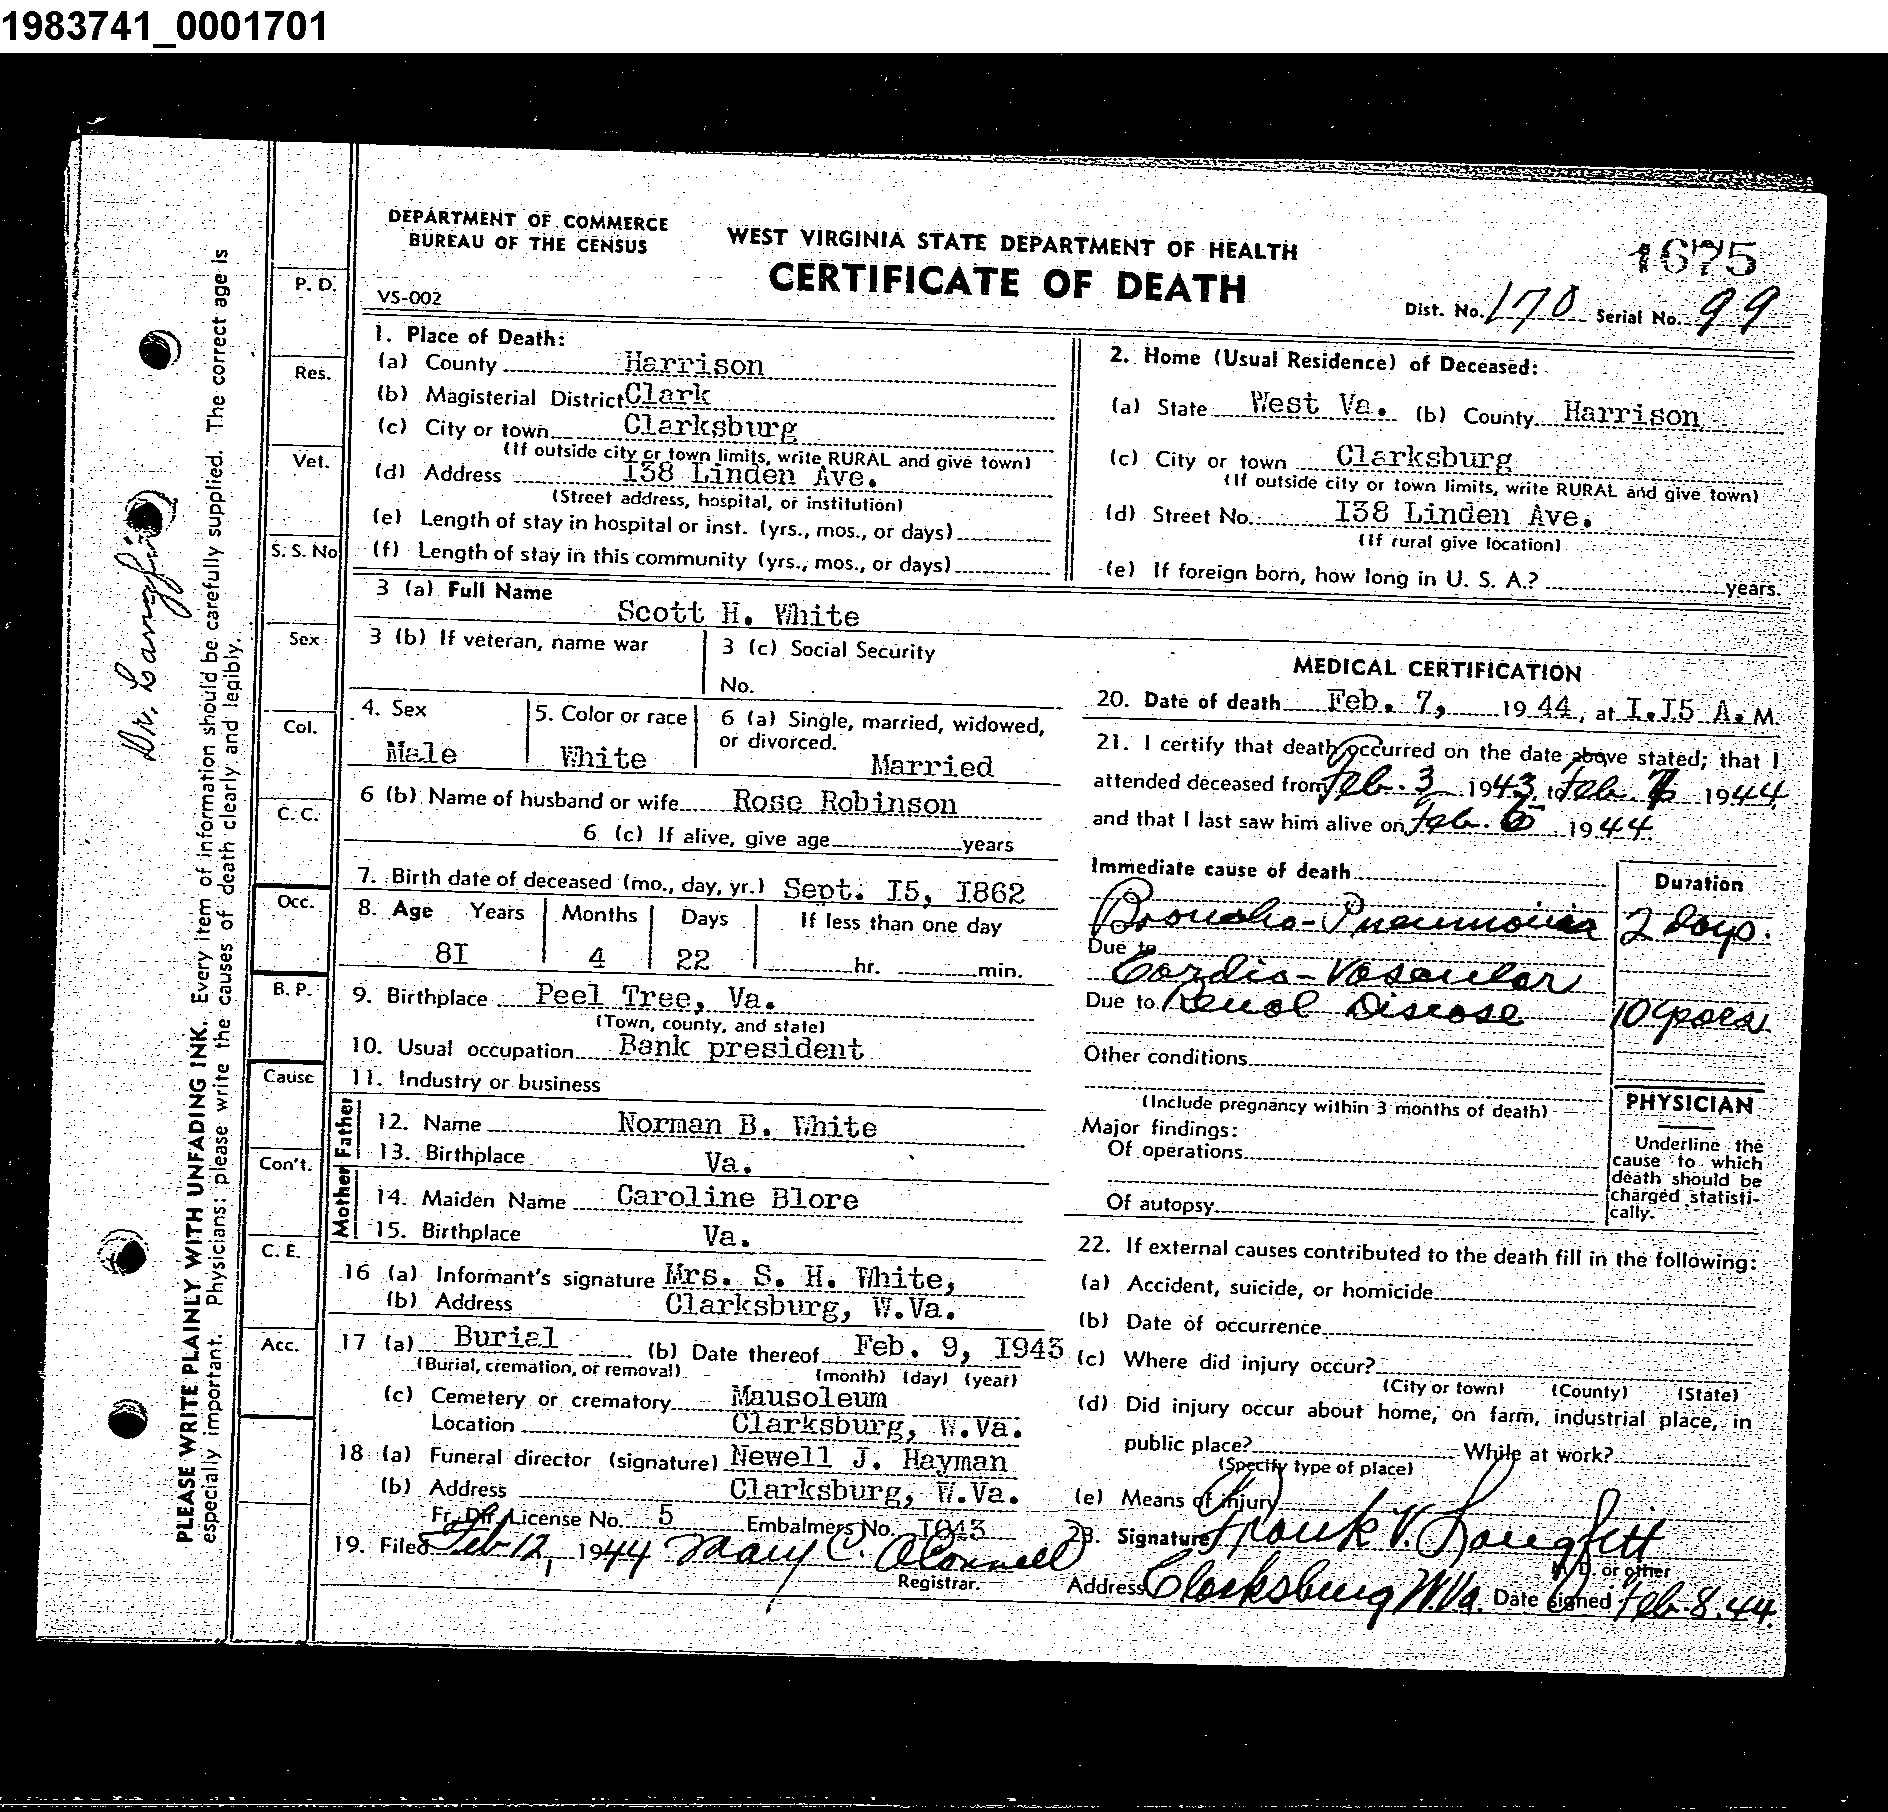 1983741_0001701
DEPARTMENT OF COMMERCE
BUREAU OF THE CENSUS
VS-002
WEST VIRGINIA STATE DEPARTMENT OF HEALTH
CERTIFICATE OF DEATH
1675
Dist. No. 170 Serial No. 99
1. Place of Death:
(a) County Harrison
(b) Magisterial District Clark
(c) City or town Clarksburg
(If outside city or town limits, write RURAL and give town)
(d) Address I38 Linden Ave.
(Street address, hospital, or institution)
(e) Length of stay in hospital or inst. (yrs., mos., or days)
(f) Length of stay in this community (yrs., mos., or days)
2. Home (Usual Residence) of Deceased:
(a) State West Va. (b) County Harrison
(c) City or town Clarksburg
(If outside city or town limits, write RURAL and give town)
(d) Street No. I38 Linden Ave.
(If rural give location)
(e) If foreign born, how long in U. S. A.? years.
3 (a) Full Name Scott H. White
3 (b) If veteran, name war
3 (c) Social Security
No.
4. Sex
Male
5. Color or race
White
6 (a) Single, married, widowed,
or divorced.
Married
6 (b) Name of husband or wife Rose Robinson
6 (c) If alive, give age years
7. Birth date of deceased (mo., day, yr.) Sept. I5, I862
8. Age Years Months Days If less than one day
8I 4 22 hr. min.
9. Birthplace Peel Tree, Va.
(Town, county, and state)
10. Usual occupation Bank president
11. Industry or business
Father
12. Name Norman B. White
13. Birthplace Va.
Mother
14. Maiden Name Caroline Blore
15. Birthplace Va.
16 (a) Informant's signature Mrs. S. H. White,
(b) Address Clarksburg, W.Va.
17 (a) Burial (b) Date thereof Feb. 9, I943
(Burial, cremation, or removal) (month) (day) (year)
(c) Cemetery or crematory Mausoleum
Location Clarksburg, W.Va.
18 (a) Funeral director (signature) Newell J. Hayman
(b) Address Clarksburg, W.Va.
Fr. Dir. License No. 5 Embalmers No. I943
19. Filed Feb 12, 1944 Mary C. O'Connell
Registrar.
MEDICAL CERTIFICATION
20. Date of death Feb. 7, 1944, at I.I5 A.M
21. I certify that death occurred on the date above stated; that I
attended deceased from Feb. 3 1943, to Feb. 1944
and that I last saw him alive on Feb. 6 1944
Immediate cause of death
Duration
Broncho-Pneumonia 2 days.
Due to
Cardio-Vascular
Due to Renal Disease 10 years
Other conditions
(Include pregnancy within 3 months of death)
Major findings:
Of operations
Of autopsy
PHYSICIAN
Underline the
cause to which
death should be
charged statisti-
cally.
22. If external causes contributed to the death fill in the following:
(a) Accident, suicide, or homicide
(b) Date of occurrence
(c) Where did injury occur?
(City or town) (County) (State)
(d) Did injury occur about home, on farm, industrial place, in
public place? While at work?
(Specify type of place)
(e) Means of injury
23. Signature Frank V. Langfitt
M. D. or other
Address Clarksburg W.Va. Date signed Feb. 8. 44.
P. D.
Res.
Vet.
S. S. No
Sex
Col.
C. C.
Occ.
B. P.
Cause
Con't.
C. E.
Acc.
Dr. Langfitt
PLEASE WRITE PLAINLY WITH UNFADING INK. Every item of information should be carefully supplied. The correct age is
especially important. Physicians: please write the causes of death clearly and legibly.